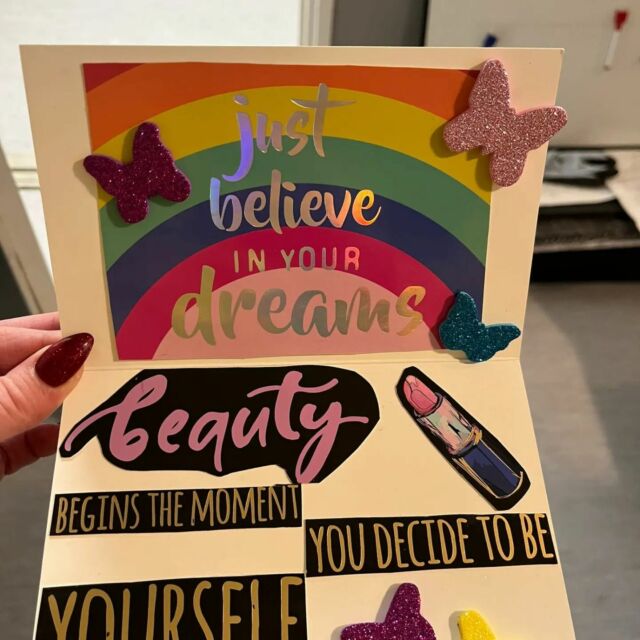 just
believe
IN YOUR
dreams
beauty
BEGINS THE MOMENT
YOU DECIDE TO BE
YOURSELF